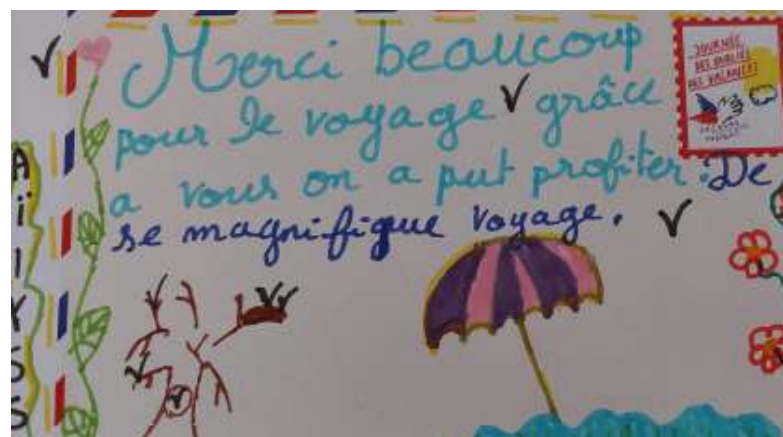 Merci beaucoup
pour le voyage grâce
a vous on a put profiter. De
se magnifique voyage.
JOURNÉE
DES OUBLIÉS
DES VACANCES